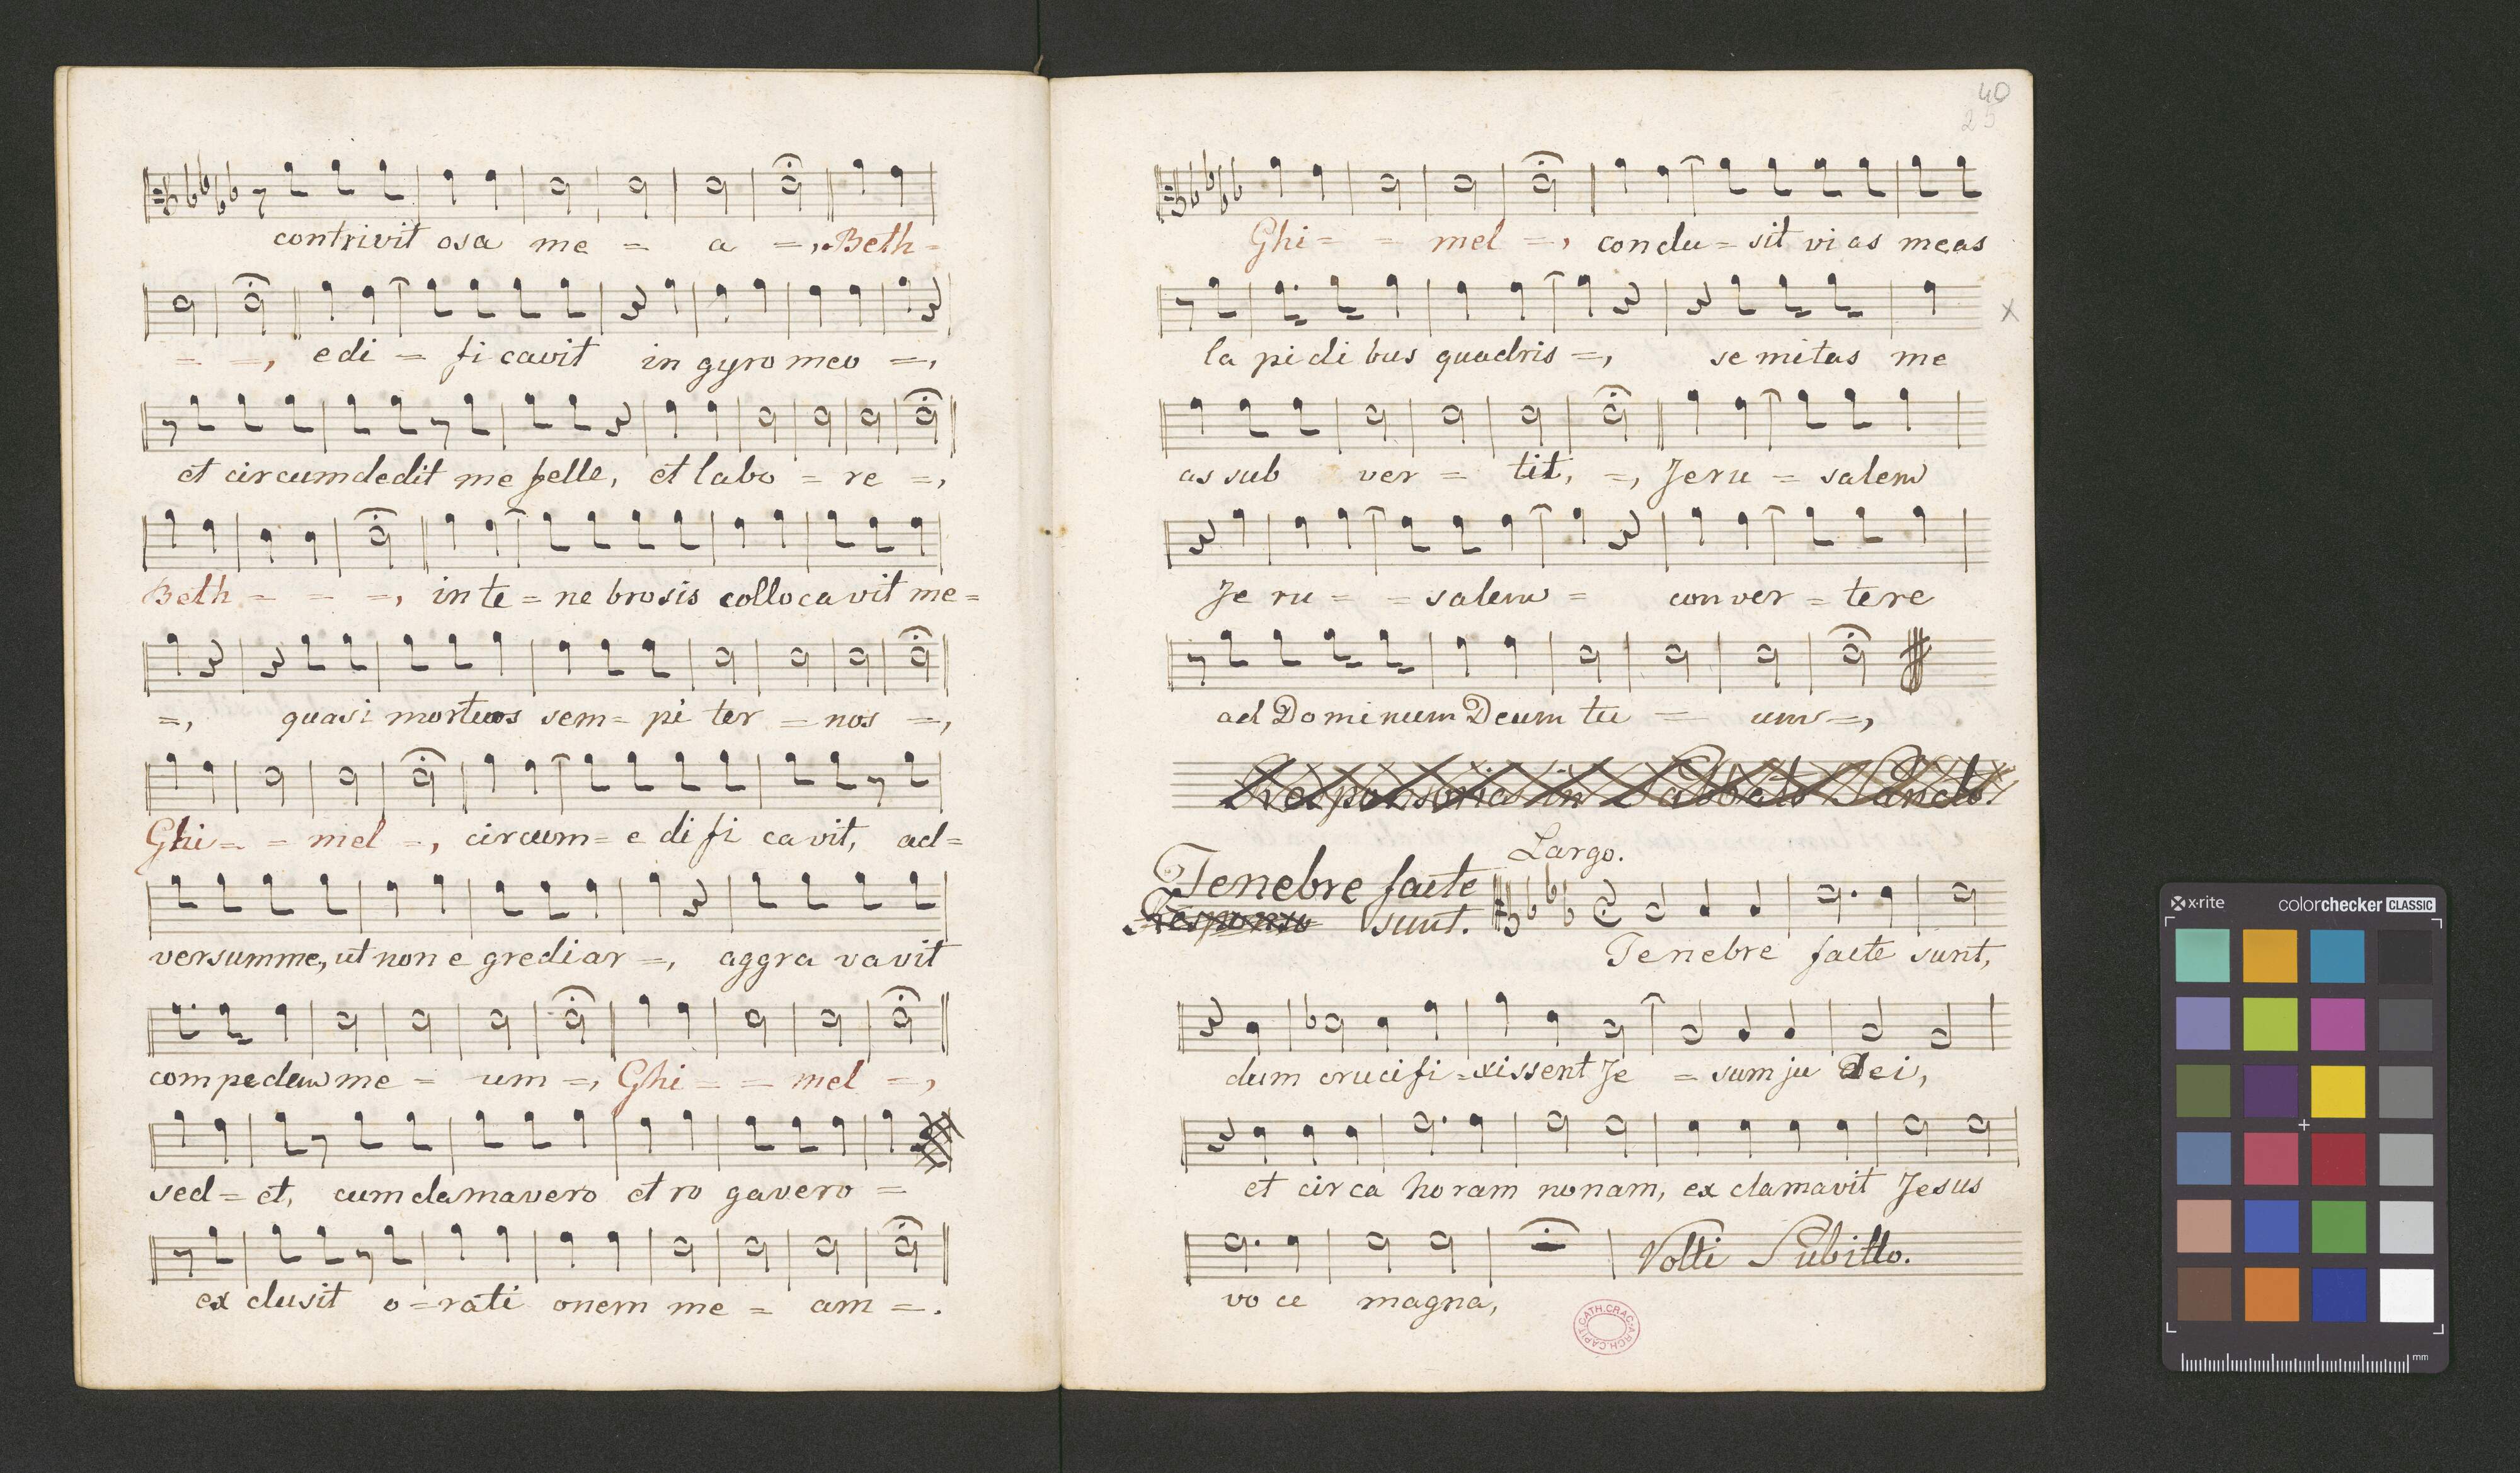 contrivit osa me = a =, Beth =
= =, edi = fi cavit in gyro meo =,
et circumdedit me felle, et labo = re =,
Beth = = =, in te = ne brosis collocavit me =
=, quasi mortuos sem = pi ter = nos =,
Ghi = = mel =, circum = e di fi cavit, ad =
versum me, ut non e grediar =, aggra vavit
compedem me = um =, Ghi = = mel =,
sed = et, cum clamavero et ro gavero =
ex clusit o = rati onem me = am =.
40
25
Ghi = = mel =, conclu = sit vi as meas
la pi di bus quadris =, se mitas me
as sub ver = tit, =, Jeru = salem
Je ru = = salem = conver = tere
ad Dominum Deum tu = um =,
Responsoria in Sabbato Sancto.
Largo.
Tenebre facte
sunt.
Tenebre facte sunt,
dum crucifi = xissent Je = sum ju dei,
et circa horam nonam, ex clamavit Jesus
vo ce magna,
Volti Subitto.
CAPIT. CATH. CRAC. ARCH.
x·rite
colorchecker CLASSIC
mm